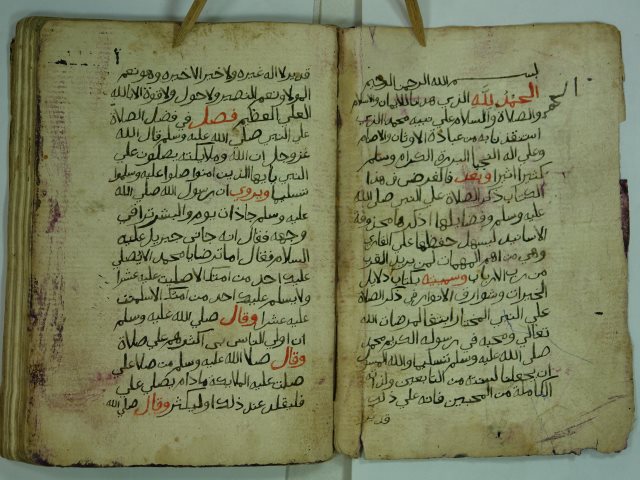 بسم الله الرحمن الرحيم
الحمد لله الذي هدانا للايمان والاسلام
والصلاة والسلام على نبيه محمد الذي
استنقذنا به من عبادة الاوثان والاصنام
وعلى اله النجبا البررة الكرام وسلم
كثيرا اثيرا وبعد فالغرض في هذا
الكتاب ذكر الصلاة على النبي صلى الله
عليه وسلم وفضايلها اذكرها محذوفة
الاسانيد ليسهل حفظها على القاري
وهي من اهم المهمات لمن يريد القرب
من رب الارباب وسميته بكتاب دلايل
الخيرات وشوارق الانوار في ذكر الصلاة
على النبي المختار ابتغا لمرضات الله
تعالى ومحبة في رسوله الكريم محمد
صلى الله عليه وسلم تسليما والله
ان يجعلنا لسنته من التابعين
الكاملة من المحبين فانه على ذلك
قدير لا اله غيره ولا خير الا خيره وهو نعم
المولا ونعم النصير ولا حول ولا قوة الا بالله
العلي العظيم فصل في فضل الصلاة
على النبي صلى الله عليه وسلم قال الله
عز وجل ان الله وملائكته يصلون على
النبي يايها الذين امنوا صلوا عليه وسلموا
تسليما ويروى ان رسول الله صلى الله
عليه وسلم جا ذات يوم والبشر ترا في
وجهه فقال انه جاني جبريل عليه
السلام فقال اما ترضا يا محمد الا يصلي
عليك احد من امتك الا صليت عليه عشرا
ولا يسلم عليك احد من امتك الا سلمت
عليه عشرا وقال صلى الله عليه وسلم
ان اولى الناس بي اكثرهم علي صلاة
وقال صلا الله عليه وسلم من صلا علي
صلت عليه الملايكة ما دام يصلي علي
فليقلل عند ذلك او ليكثر وقال صلى الله